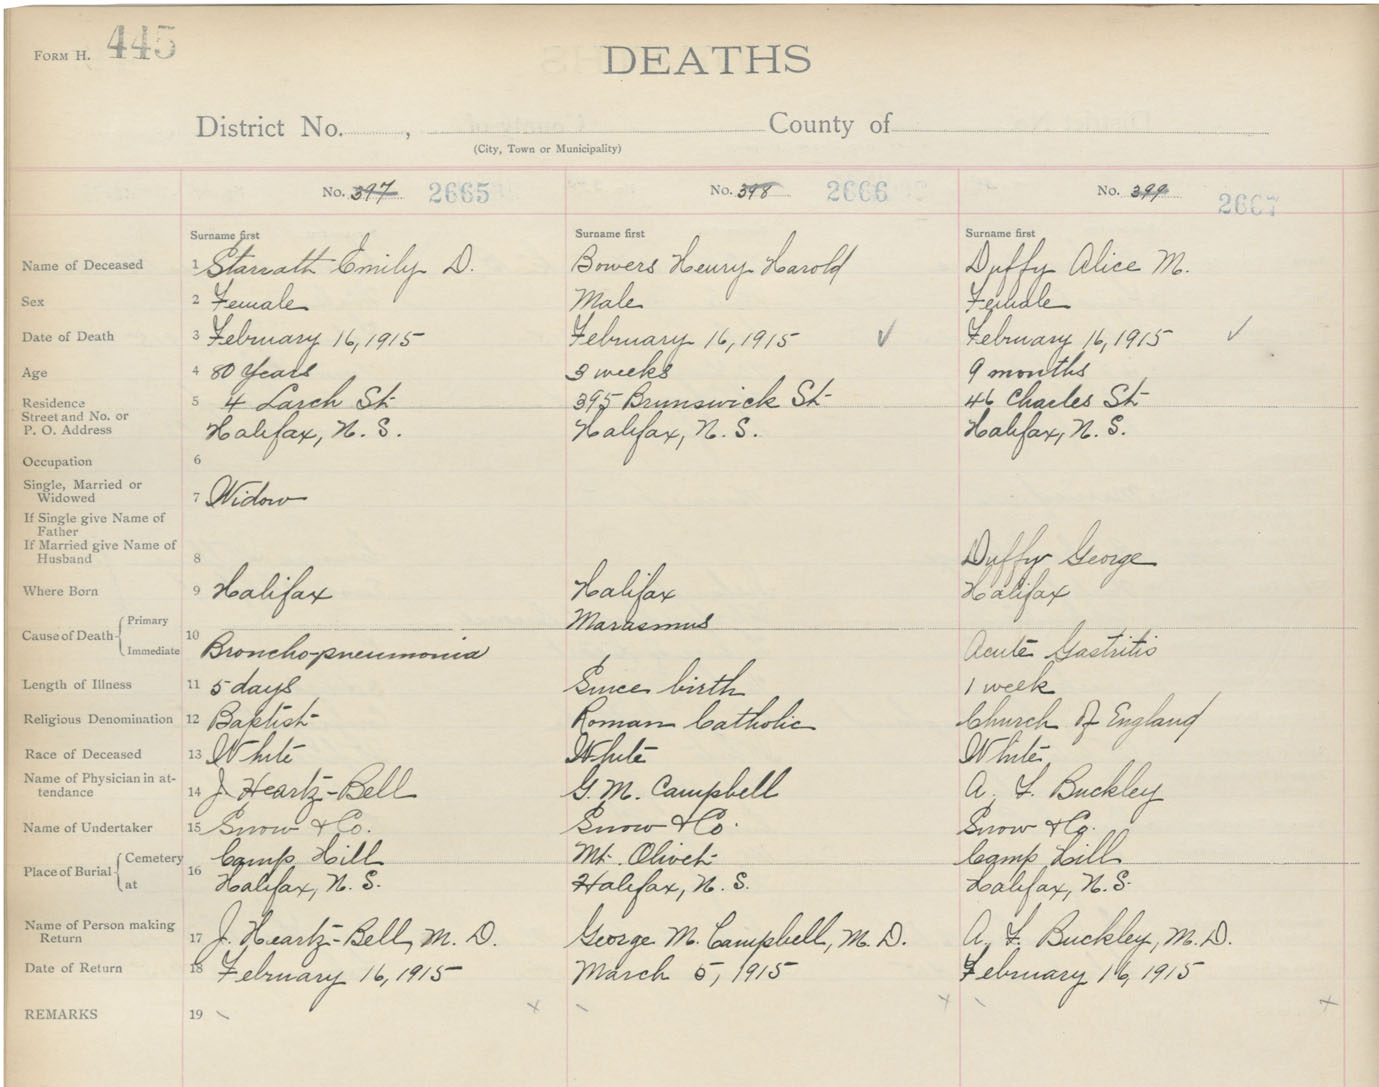 FORM H. 445
DEATHS
District No. , County of
(City, Town or Municipality)
No. 397 2665 No. 398 2666 No. 399 2667
Surname first Surname first Surname first
Name of Deceased 1 Emily D. Bowers Henry Harold Duffy Alice M.
Sex 2 Female Male Female
Date of Death 3 February 16, 1915 February 16, 1915 ✓ February 16, 1915 ✓
Age 4 80 years 3 weeks 9 months
Residence 5 4 Larch St. 395 Brunswick St. 46 Charles St.
Street and No. or
P. O. Address Halifax, N. S. Halifax, N. S. Halifax, N. S.
Occupation 6
Single, Married or
Widowed 7 Widow
If Single give Name of
Father
If Married give Name of
Husband 8 Duffy George
Where Born 9 Halifax Halifax Halifax
Primary Marasmus
Cause of Death 10
Immediate Broncho-pneumonia Acute Gastritis
Length of Illness 11 5 days Since birth 1 week
Religious Denomination 12 Baptist Roman Catholic Church of England
Race of Deceased 13 White White White
Name of Physician in at-
tendance 14 J. Heartz-Bell G. M. Campbell A. F. Buckley
Name of Undertaker 15 Snow & Co. Snow & Co. Snow & Co.
Cemetery Camp Hill Mt. Olivet Camp Hill
Place of Burial 16
at Halifax, N. S. Halifax, N. S. Halifax, N. S.
Name of Person making
Return 17 J. Heartz-Bell, M. D. George M. Campbell, M. D. A. F. Buckley, M. D.
Date of Return 18 February 16, 1915 March 5, 1915 February 16, 1915
REMARKS 19